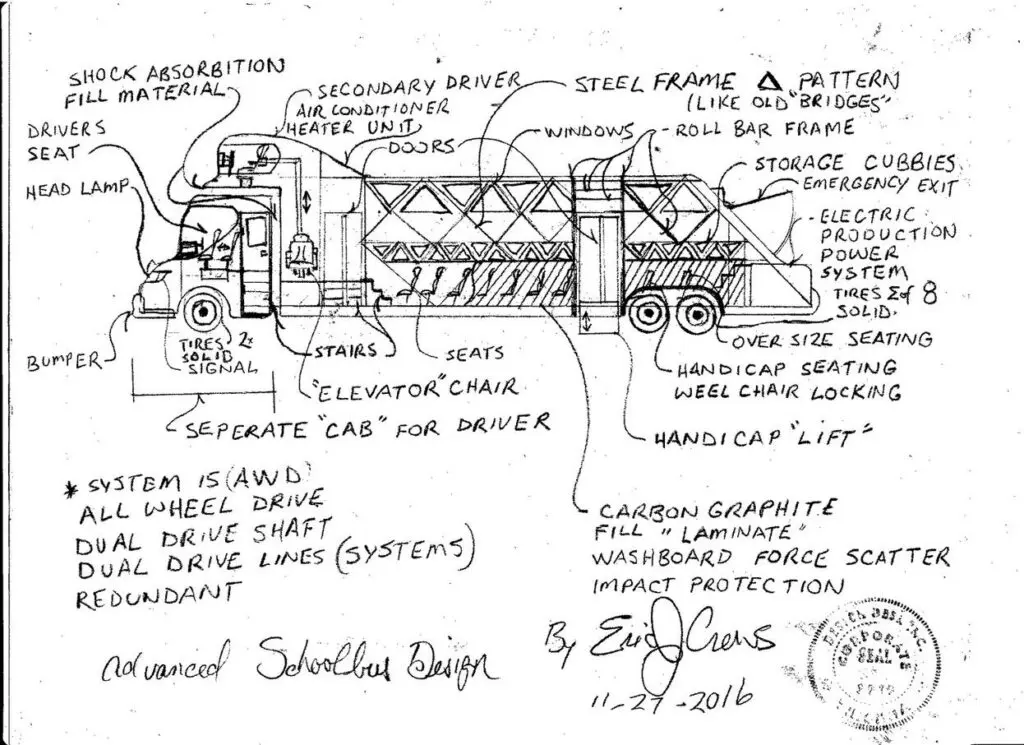 SHOCK ABSORBITION
FILL MATERIAL
DRIVERS
SEAT
HEAD LAMP
SECONDARY DRIVER
AIR CONDITIONER
HEATER UNIT
DOORS
STEEL FRAME Δ PATTERN
(LIKE OLD "BRIDGES"
WINDOWS
ROLL BAR FRAME
STORAGE CUBBIES
EMERGENCY EXIT
ELECTRIC
PRODUCTION
POWER
SYSTEM
TIRES Σ of 8
SOLID.
BUMPER
TIRES 2x
SOLID
SIGNAL
STAIRS
SEATS
OVER SIZE SEATING
"ELEVATOR" CHAIR
HANDICAP SEATING
WEEL CHAIR LOCKING
SEPERATE "CAB" FOR DRIVER
HANDICAP "LIFT"
* SYSTEM IS (AWD)
ALL WHEEL DRIVE
DUAL DRIVE SHAFT
DUAL DRIVE LINES (SYSTEMS)
REDUNDANT
CARBON GRAPHITE
FILL "LAMINATE"
WASHBOARD FORCE SCATTER
IMPACT PROTECTION
Advanced Schoolbus Design
By Eric J Crews
11-27-2016
CORPORATE
SEAL